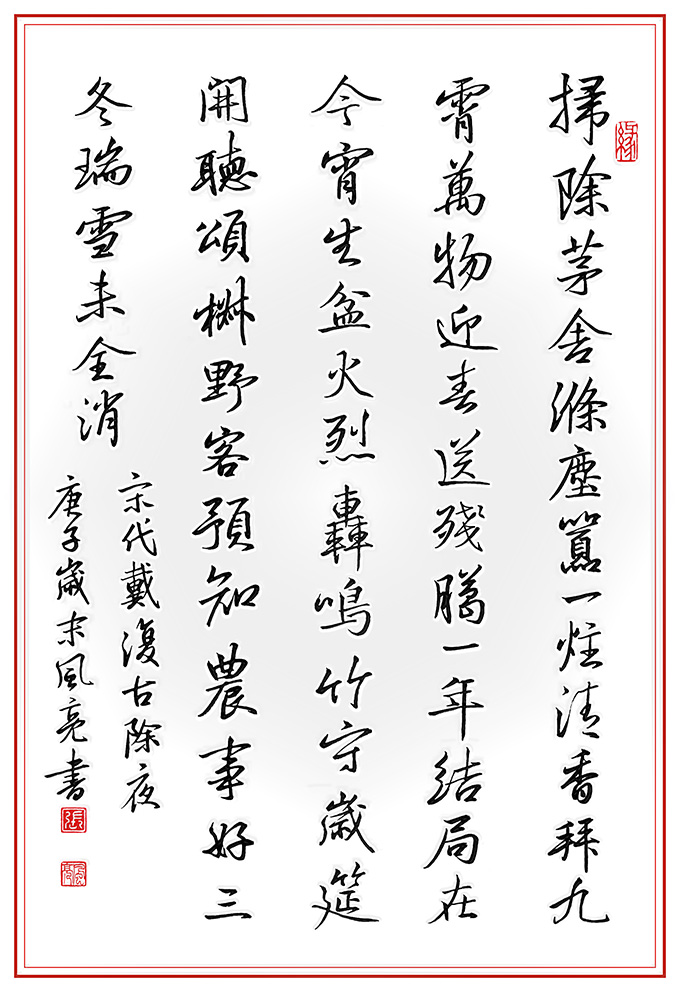 緣
掃除茅舍滌塵囂一炷清香拜九
霄萬物迎春送殘臘一年結局在
今宵生盆火烈轟鳴竹守歲筵
開聽頌椒野客預知農事好三
冬瑞雪未全消
宋代戴復古除夜
庚子歲末風亮書
張
風亮